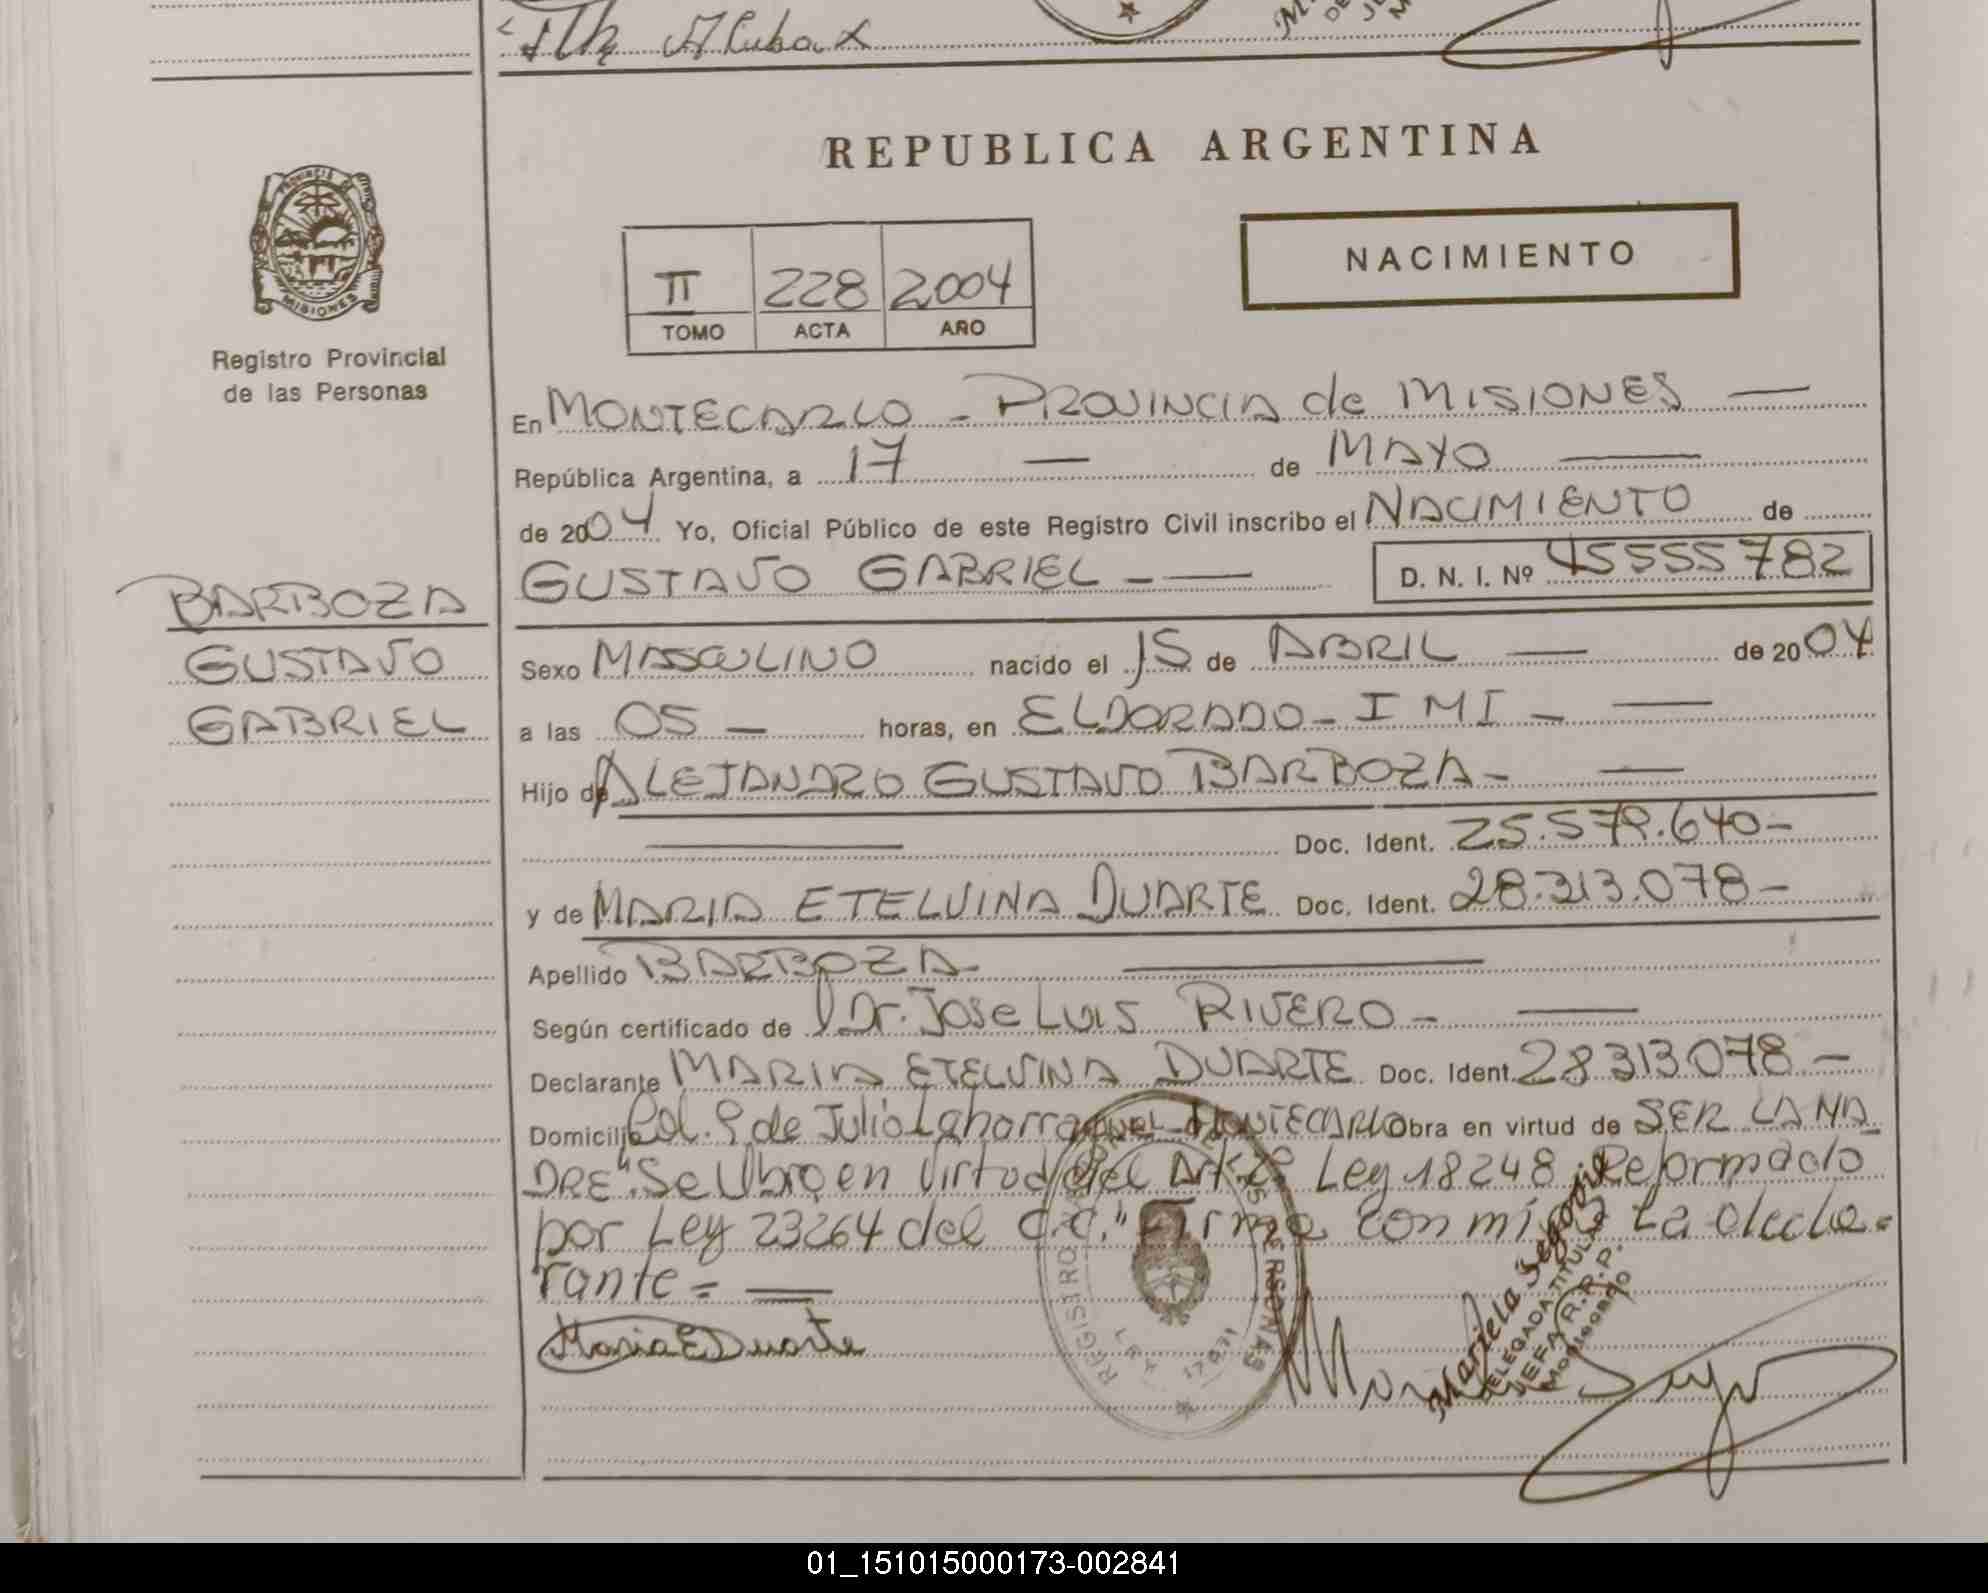 PROVINCIA DE
MISIONES
Registro Provincial
de las Personas
BARBOZA
GUSTAVO
GABRIEL
REPUBLICA ARGENTINA
II 228 2004
TOMO ACTA AÑO
NACIMIENTO
En MONTECARLO - PROVINCIA de MISIONES —
República Argentina, a 17 — de MAYO —
de 2004 Yo, Oficial Público de este Registro Civil inscribo el NACIMIENTO de
GUSTAVO GABRIEL - — D. N. I. Nº 45555782
Sexo MASCULINO nacido el 15 de ABRIL — de 2004
a las 05 — horas, en ELDORADO - I MI - —
Hijo de ALEJANDRO GUSTAVO BARBOZA - —
— Doc. Ident. 25.579.640-
y de MARIA ETELVINA DUARTE Doc. Ident. 28.313.078-
Apellido BARBOZA - —
Según certificado de Dr. Jose Luis RIVERO - —
Declarante MARIA ETELVINA DUARTE Doc. Ident. 28313078 -
Domicilio Col. 9 de Julio Lahorra MONTECARLO Obra en virtud de SER LA MA
DRE "Se Ubro en Virtud del Art. 2º Ley 18248 Reformado
por Ley 23264 del C.C." Firma con mi go La decla=
rante = —
Maria E Duarte
REGISTRO PERSONAS
LEY 17671
Mariela Segovia
DELEGADA TITULAR
JEFA R.R.P.P.
Montecarlo
01_151015000173-002841